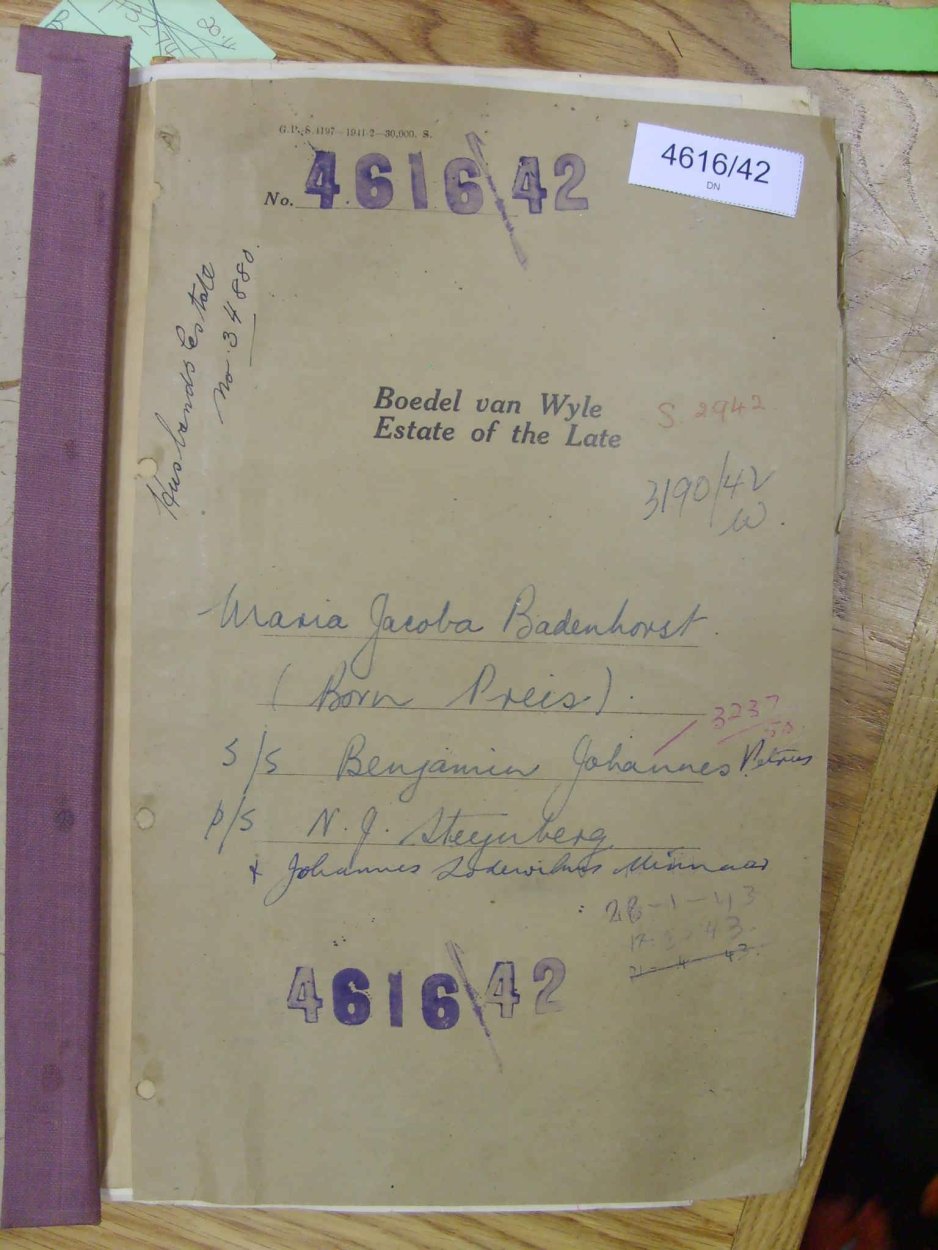 G.P.-S.4197—1941-2—30,000. S.
No. 4616/42
4616/42
DN
Husbands Estate
No. 34880.
Boedel van Wyle
Estate of the Late
S. 2942
3190/42
W.
Maria Jacoba Badenhorst.
(Born Preis).
3237
S/S Benjamin Johannes Petrus
P/S N. J. Steynberg
+ Johannes Lodewikus Minnaar
28-1-43
12.3.43.
21-4-43.
4616/42